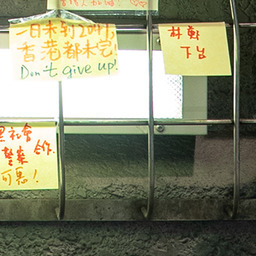 一日未到2047,
香港都未完!
Don't give up!
林鄭
下台
黑社會
警察 合作.
可惡!